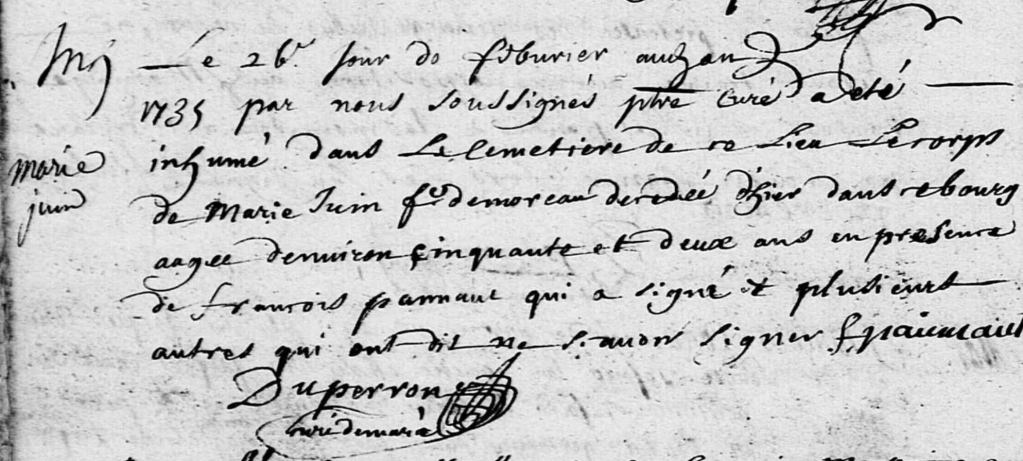 Le 26e Jour de febvrier audt an
1735 par nous soussignés ptre Curé a eté
marie
juin
inhumé dans Le Cemetiere de ce Lieu Le corps
de Marie Juin fe demoreau decedée d'hier dans ce bourg
aagée denviron Cinquante et deux ans en presence
de francois pannaut qui a signé et plusieurs
autres qui ont dit ne scavoir signer
Duperron
Curé